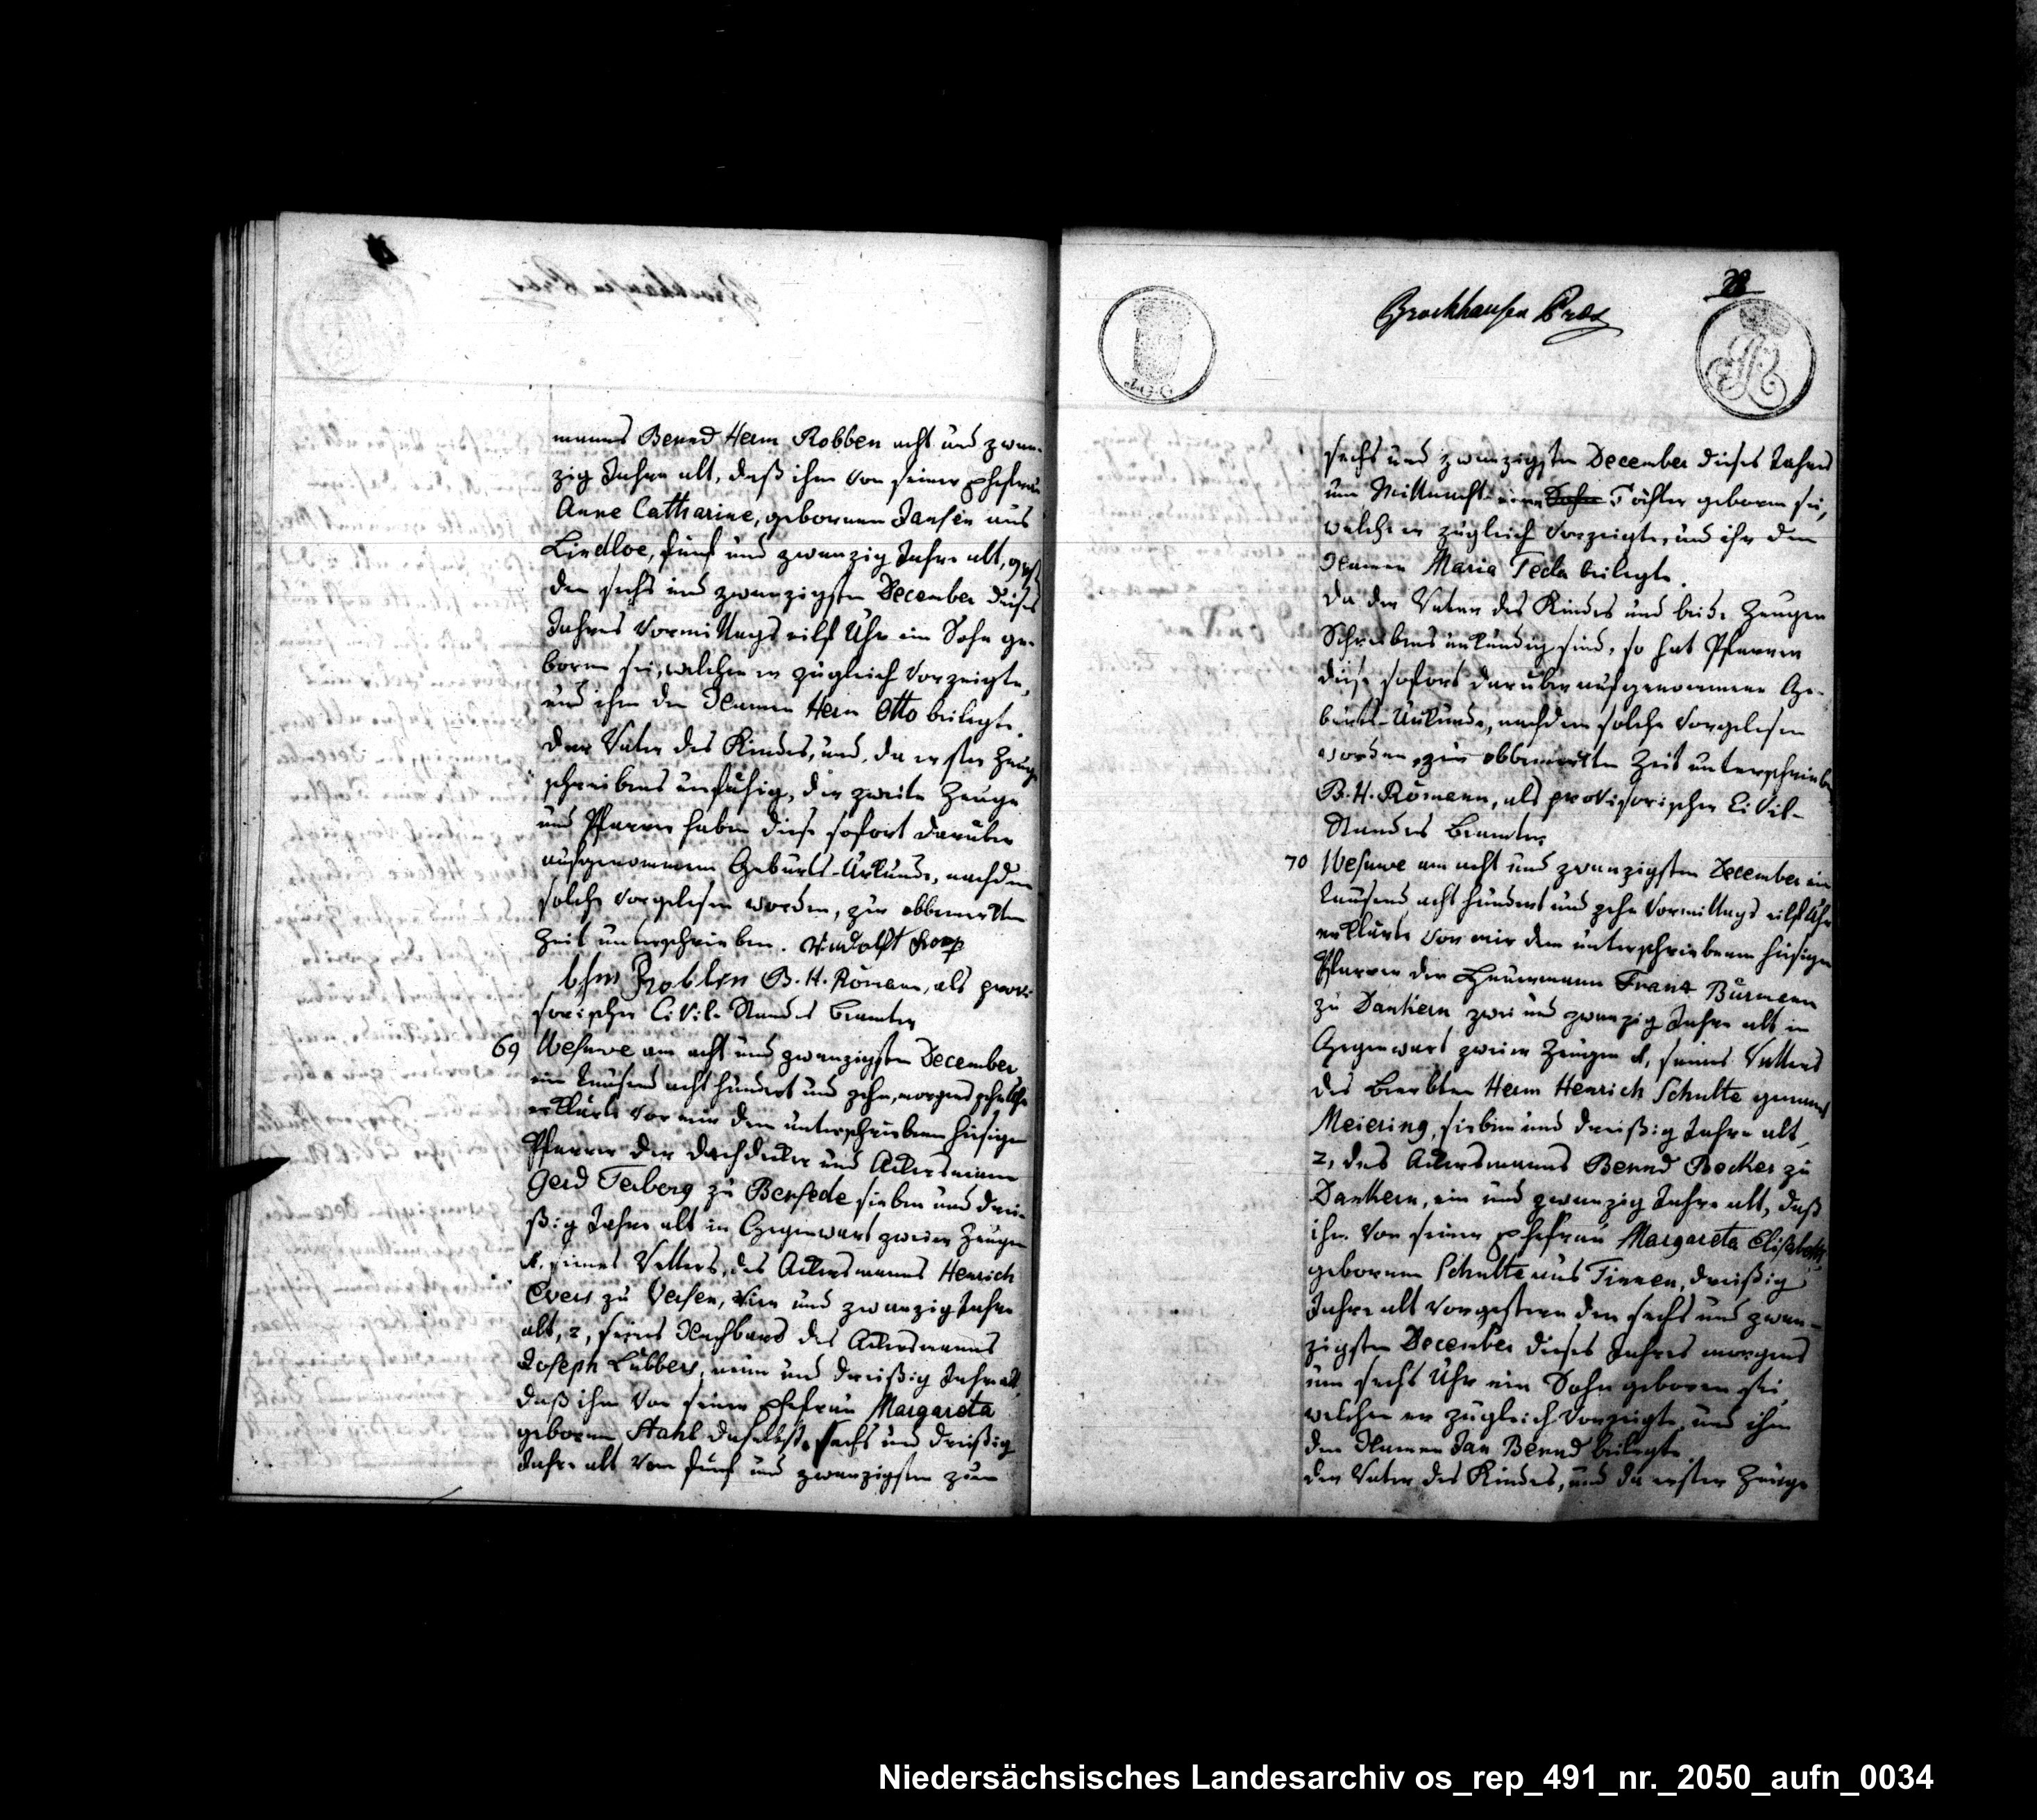 manns Bernd Herm Robben acht und zwan-
zig Jahre alt, daß ihm von seiner Ehefrau
Anne Catharine, gebornen Jansen aus
Lindloe, fünf und zwanzig Jahre alt,
den sechs und zwanzigsten December dieses
Jahres Vormittags eilf Uhr ein Sohn ge-
boren sei, welchen er zugleich vorzeigte,
und ihm den Namen Herm Otto beilegte.
Der Vater des Kindes, und, da erster Zeuge
schreibens unfähig, der zweite Zeuge
und Pfarrer haben diese sofort darüber
aufgenommene Geburts-Urkunde, nachdem
solche vorgelesen worden, zur obbemerkten
Zeit unterschrieben. Rudolf
Robben B. H. Römann, als provi-
sorischer Civil-Standes Beamter
69 Wesuwe am acht und zwanzigsten December
ein tausend acht hundert und zehn, morgens zehn Uhr
erklärte vor mir dem unterschriebenen hiesigen
Pfarrer der Dachdecker und Ackersmann
Gerd Terberg zu Versede sieben und drei-
ßig Jahre alt in Gegenwart zweier Zeugen
1. seines Vetters, des Ackersmanns Henrich
Evers zu Versen, vier und zwanzig Jahre
alt, 2, seines Nachbars des Ackersmanns
Joseph Lübbers, neun und dreißig Jahre alt,
daß ihm von seiner Ehefrau Margareta
gebornen Stahl daselbst, sechs und dreißig
Jahre alt vom fünf und zwanzigsten zum
28
Brockhausen Präs
sechs und zwanzigsten December dieses Jahres
um Mitternacht eine Sohn Tochter geboren sei,
welche er zugleich vorzeigte, und ihr den
Namen Maria Tecla beilegte.
Da der Vater des Kindes und beide Zeugen
Schreibens unkundig sind, so hat Pfarrer
diese sofort darüber aufgenommene Ge-
burts-Urkunde, nachdem solche vorgelesen
worden, zur obbemerkten Zeit unterschrieben
B. H. Römann, als provisorischer Civil-
Standes Beamter
70 Wesuwe am acht und zwanzigsten December ein
tausend acht hundert und zehn Vormittags eilf Uhr
erklärte vor mir dem unterschriebenen hiesigen
Pfarrer der Heuermann Frantz Burmann
zu Dankern zwei und zwanzig Jahre alt in
Gegenwart zweier Zeugen 1, seines Vetters
des Beerbten Herm Henrich Schulte genannt
Meiering, sieben und dreißig Jahre alt,
2, des Ackersmanns Bernd Becker zu
Dankern, ein und zwanzig Jahre alt, daß
ihm von seiner Ehefrau Margareta Elisabeth,
gebornen Schulte aus Tinnen, dreißig
Jahre alt vorgestern den sechs und zwan-
zigsten December dieses Jahres morgens
um sechs Uhr ein Sohn geboren sei
welchen er zugleich vorzeigte und ihm
den Namen Jan Bernd beilegte.
der Vater des Kindes, und da erster Zeuge
Niedersächsisches Landesarchiv os_rep_491_nr._2050_aufn_0034